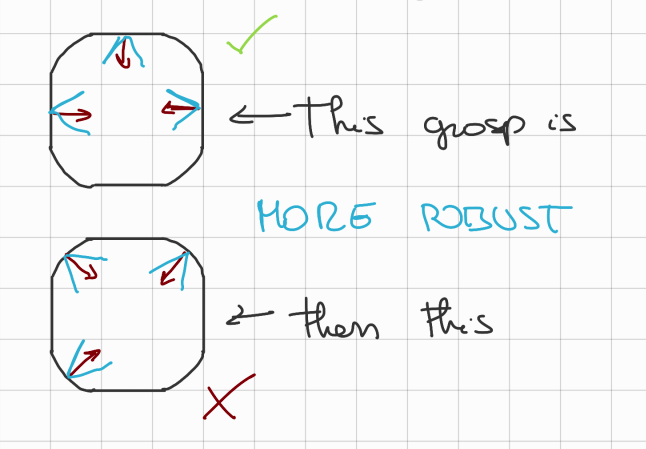 This grasp is
MORE ROBUST
then this